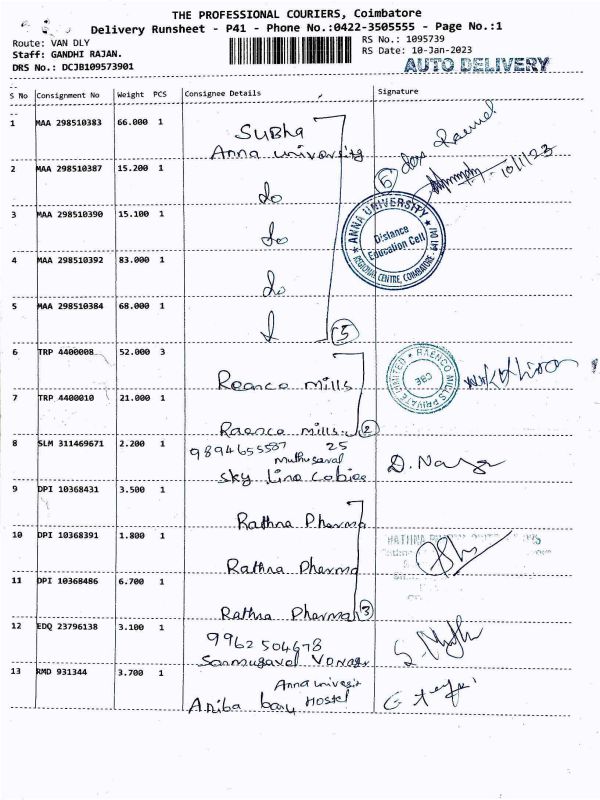 THE PROFESSIONAL COURIERS, Coimbatore
Delivery Runsheet - P41 - Phone No.:0422-3505555 - Page No.:1
Route: VAN DLY
Staff: GANDHI RAJAN.
DRS No.: DCJB109573901
RS No.: 1095739
RS Date: 10-Jan-2023
AUTO DELIVERY
S No Consignment No Weight PCS Consignee Details Signature
1 MAA 298510383 66.000 1 Subha
Anna University
2 MAA 298510387 15.200 1 do
3 MAA 298510390 15.100 1 do
4 MAA 298510392 83.000 1 do
5 MAA 298510384 68.000 1
5
6
10/1/23
ANNA UNIVERSITY
Distance
Education Cell
REGIONAL CENTRE, COIMBATORE - 641 001
6 TRP 4400008 52.000 3 Reanco mills
7 TRP 4400010 21.000 1 Raenco mills
2
RAENCO MILLS PRIVATE LIMITED
CBE
8 SLM 311469671 2.200 1 9894655587 25
Sky Line
D.
9 DPI 10368431 3.500 1 Rathna Pharma
10 DPI 10368391 1.800 1 Rathna Pharma
11 DPI 10368486 6.700 1 Rathna Pharma
3
12 EDQ 23796138 3.100 1 9962504678
13 RMD 931344 3.700 1 Anna
Hostel